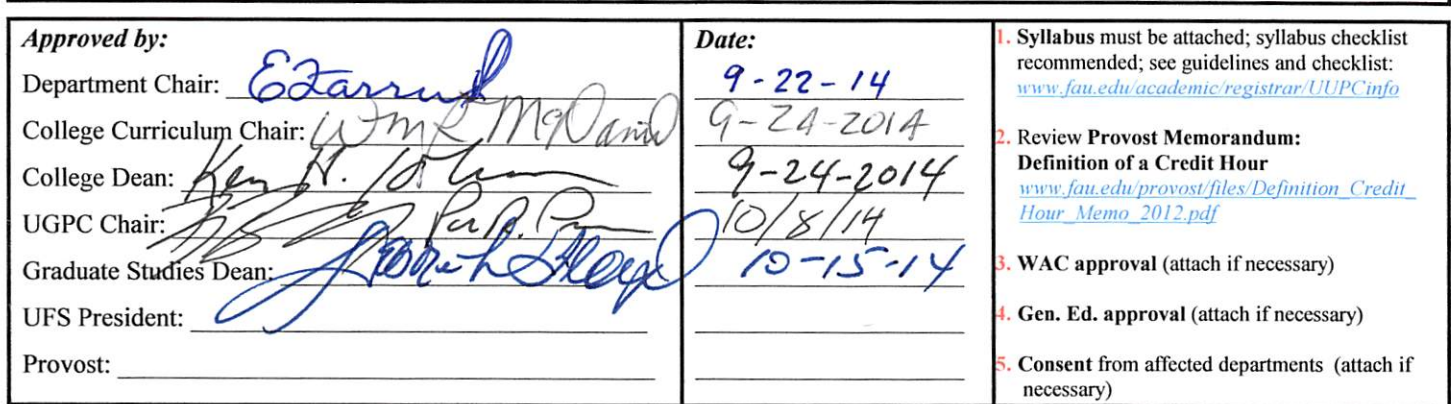 Approved by:
Department Chair:
College Curriculum Chair: Wm R McDaniel
College Dean: Ken H.
UGPC Chair:
Graduate Studies Dean:
UFS President:
Provost:
Date:
9-22-14
9-24-2014
9-24-2014
10/8/14
10-15-14
1. Syllabus must be attached; syllabus checklist
recommended; see guidelines and checklist:
www.fau.edu/academic/registrar/UUPCinfo
2. Review Provost Memorandum:
Definition of a Credit Hour
www.fau.edu/provost/files/Definition_Credit_
Hour_Memo_2012.pdf
3. WAC approval (attach if necessary)
4. Gen. Ed. approval (attach if necessary)
5. Consent from affected departments (attach if
necessary)